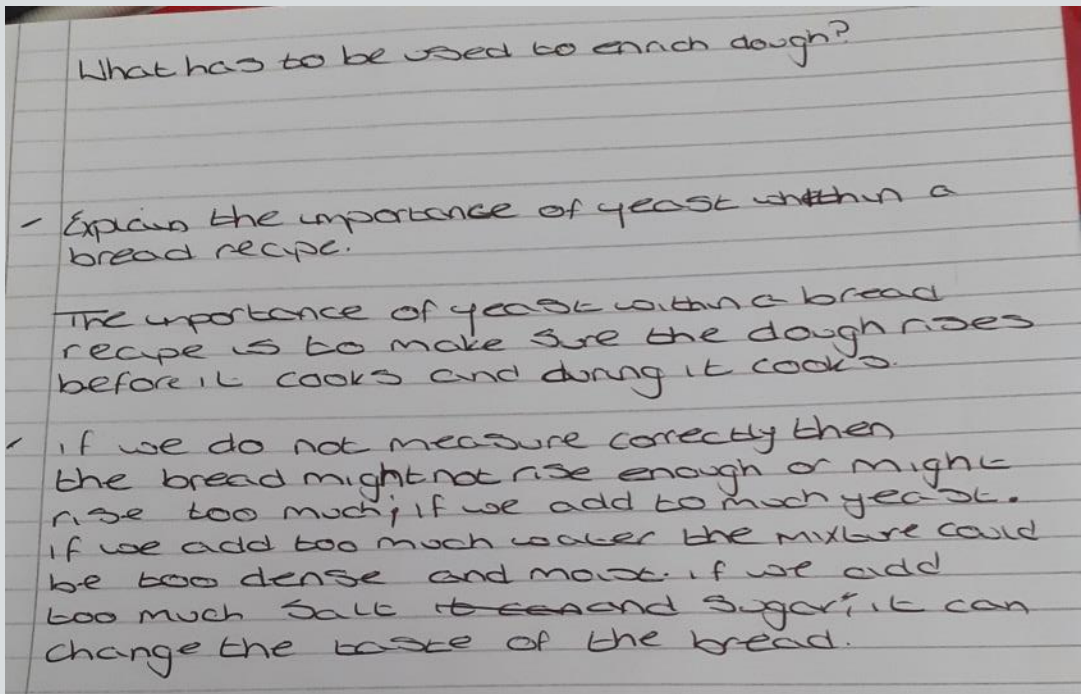 What has to be used to enrich dough?
- Explain the importance of yeast whithin a
bread recipe.
The importance of yeast within a bread
recipe is to make sure the dough rises
before it cooks and during it cooks.
- if we do not measure correctly then
the bread might not rise enough or might
rise too much; if we add to much yeast.
if we add too much water the mixture could
be too dense and moist. if we add
too much salt and sugar; it can
change the taste of the bread.